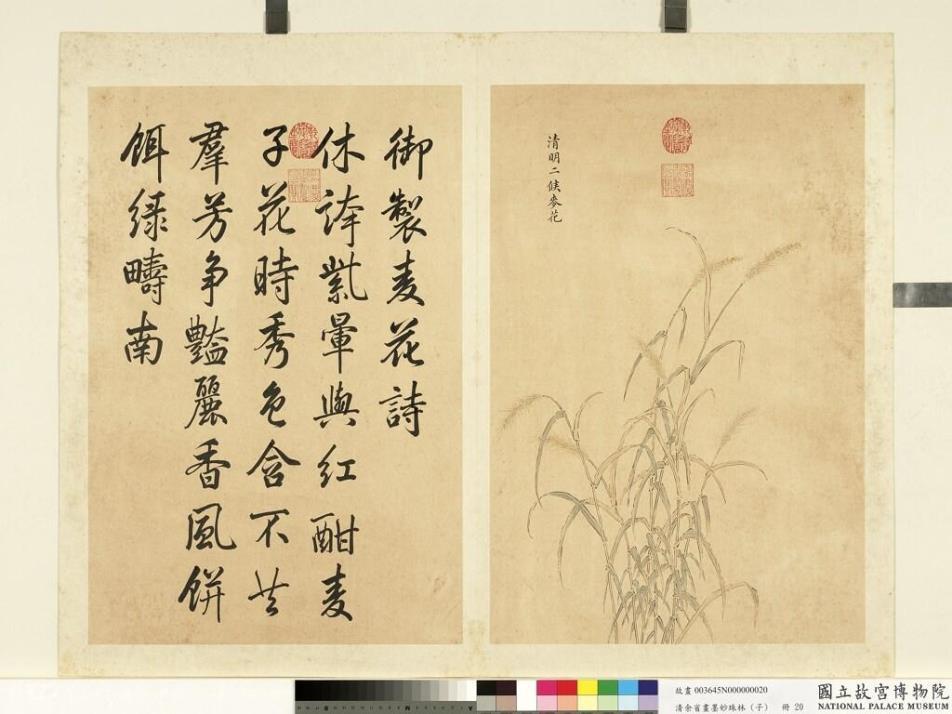 清明二候麥花
御製麦花詩
休誇紫暈與紅酣麦
子花時秀色含不共
羣芳争豔麗香風餅
餌绿疇南
故畫 003645N000000020
清余省畫墨妙珠林(子) 冊 20
國立故宮博物院
NATIONAL PALACE MUSEUM